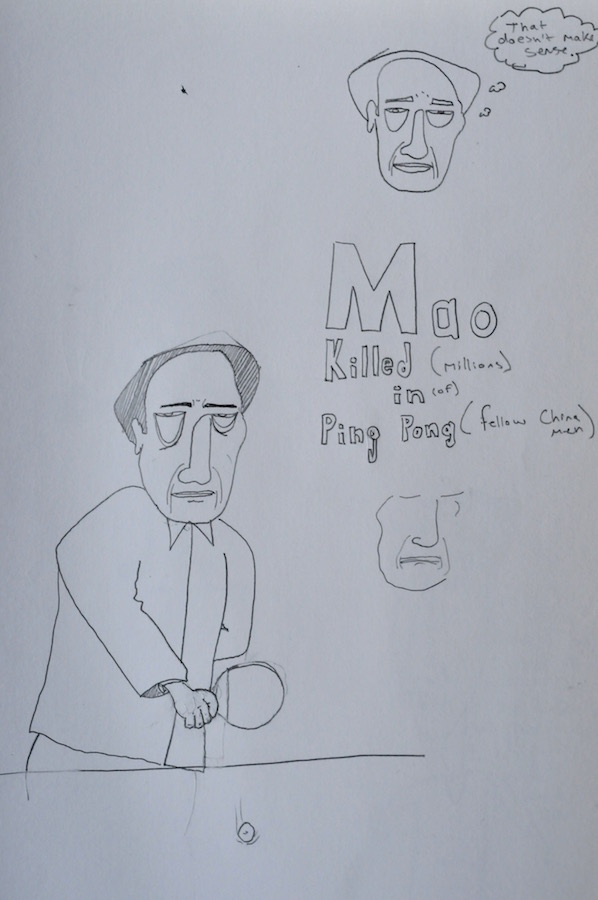 That
doesn't make
sense.
Mao
Killed (millions)
in (of)
Ping Pong (fellow China
men)